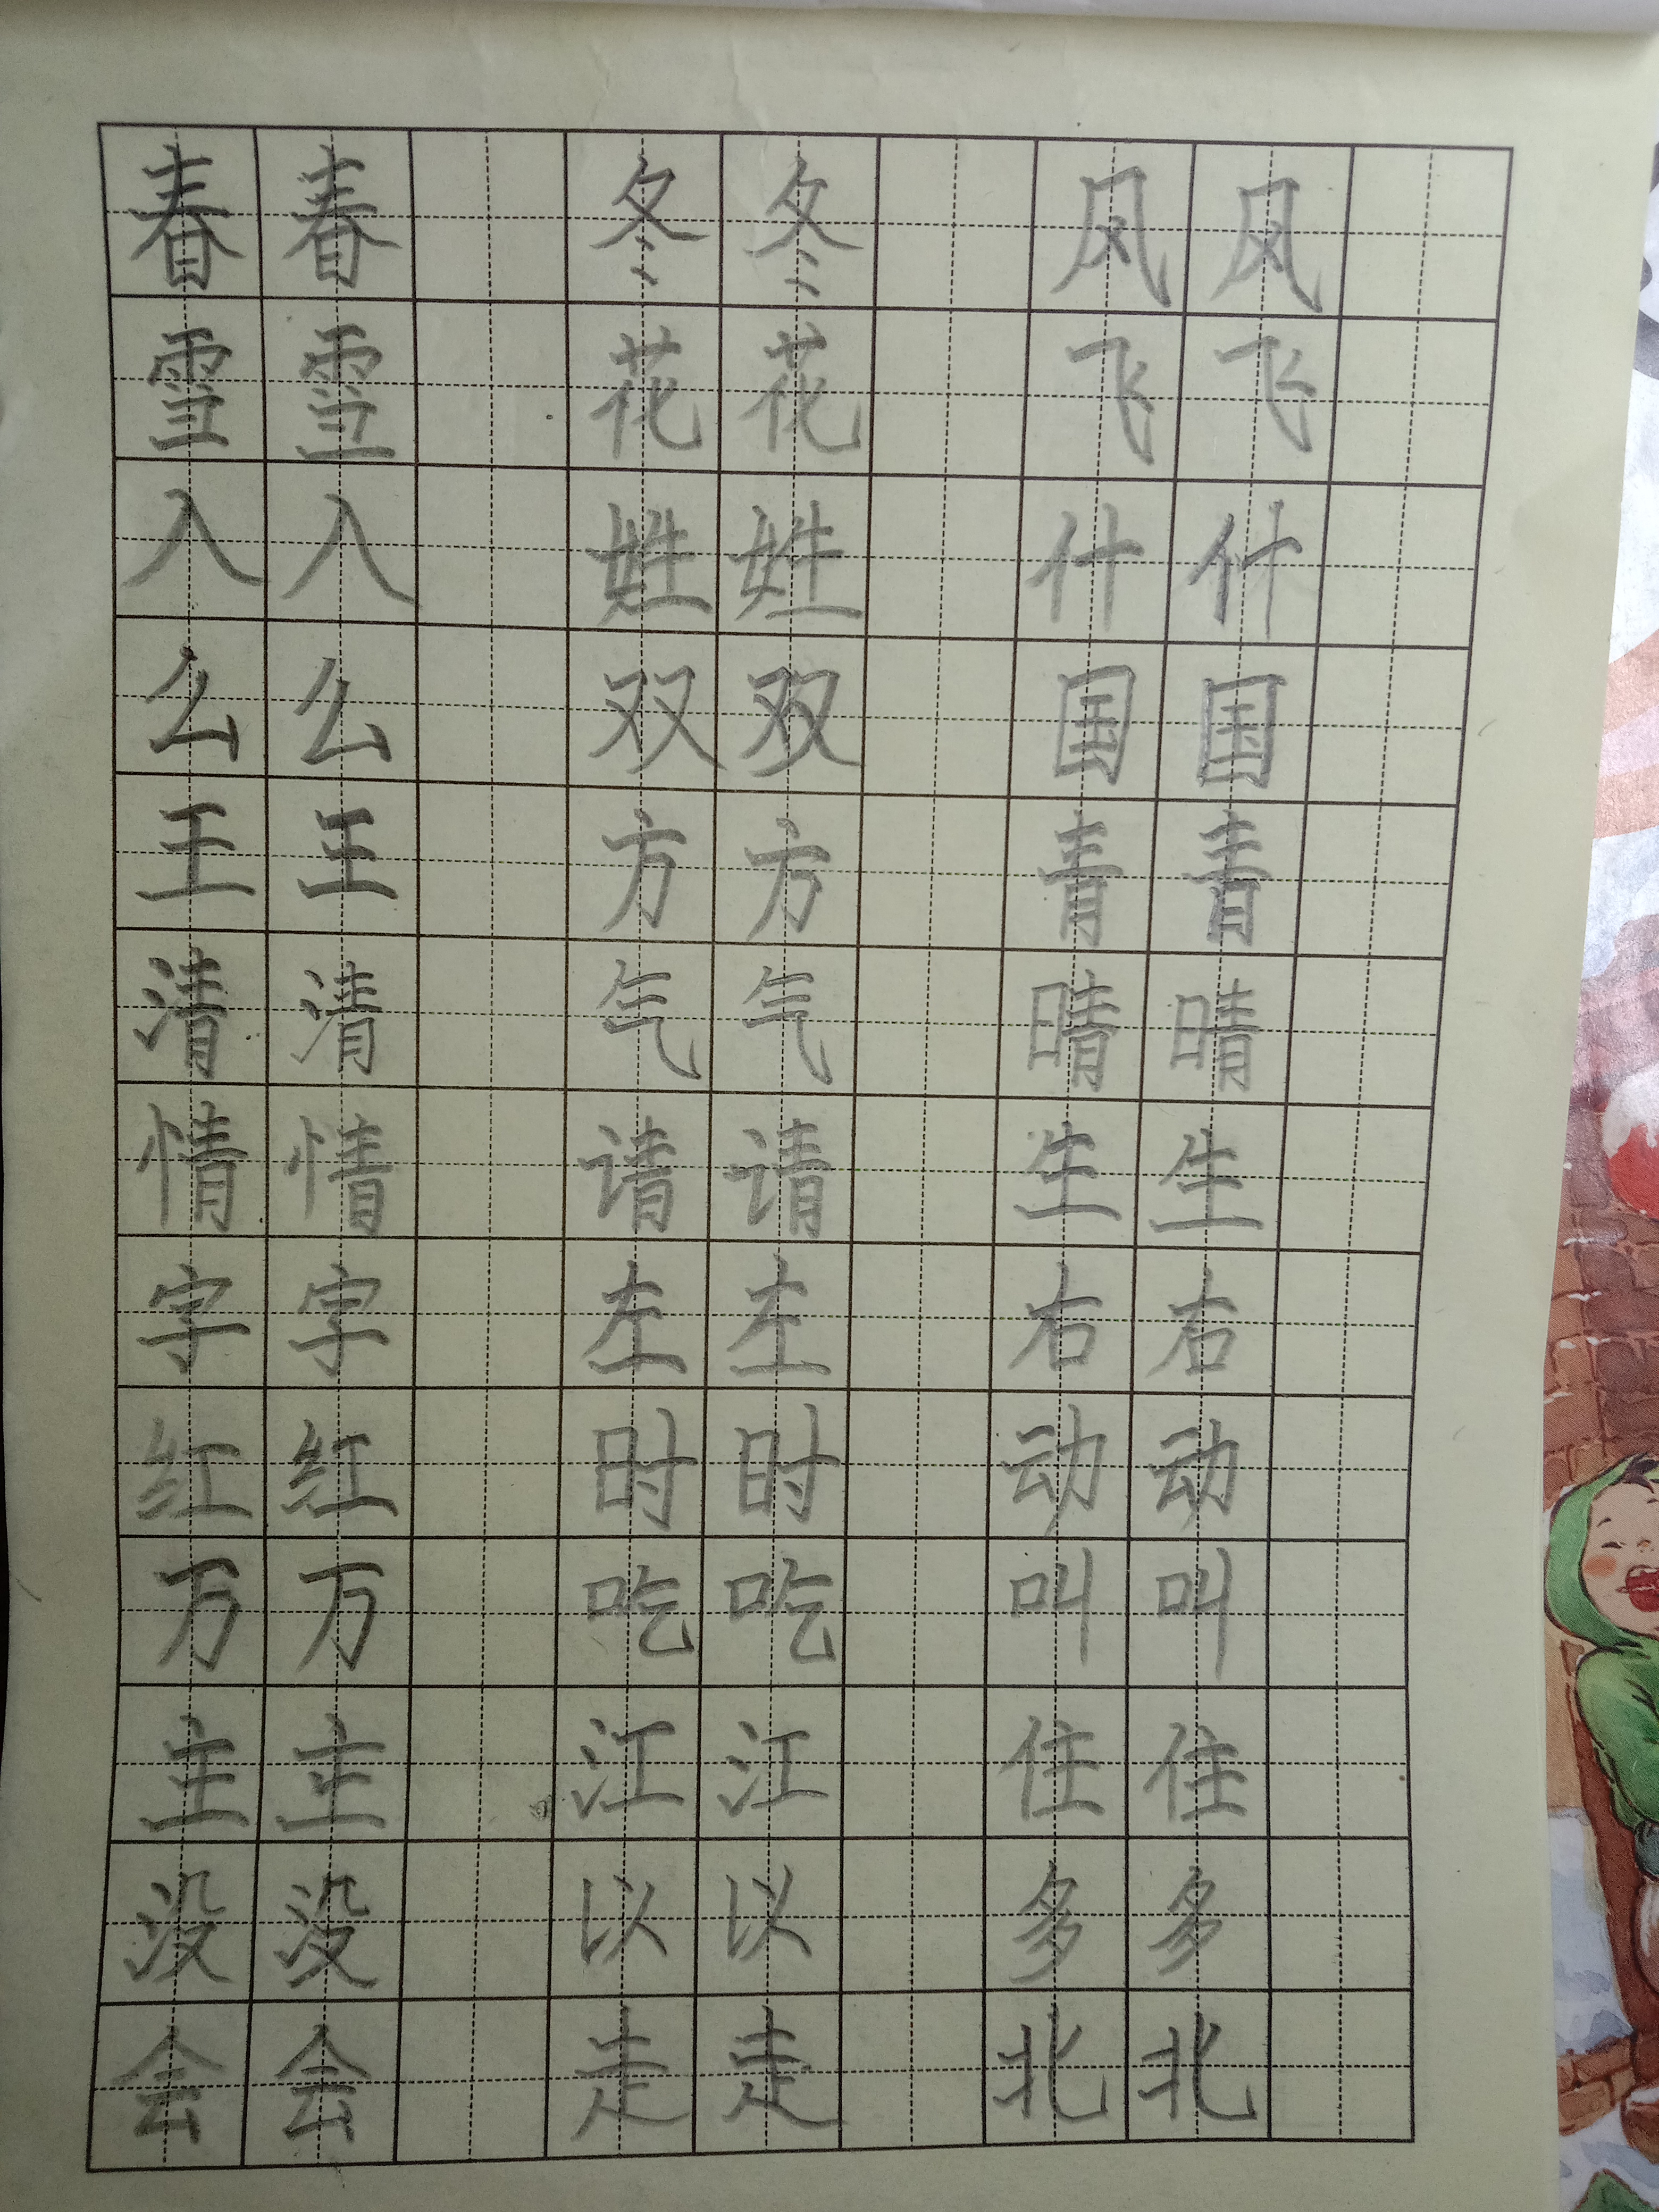 春春 冬冬 风风
雪雪 花花 飞飞
入入 姓姓 什什
么么 双双 国国
王王 方方 青青
清清 气气 晴晴
情情 请请 生生
字字 左左 右右
红红 时时 动动
万万 吃吃 叫叫
主主 江江 住住
没没 以以 多多
会会 走走 北北